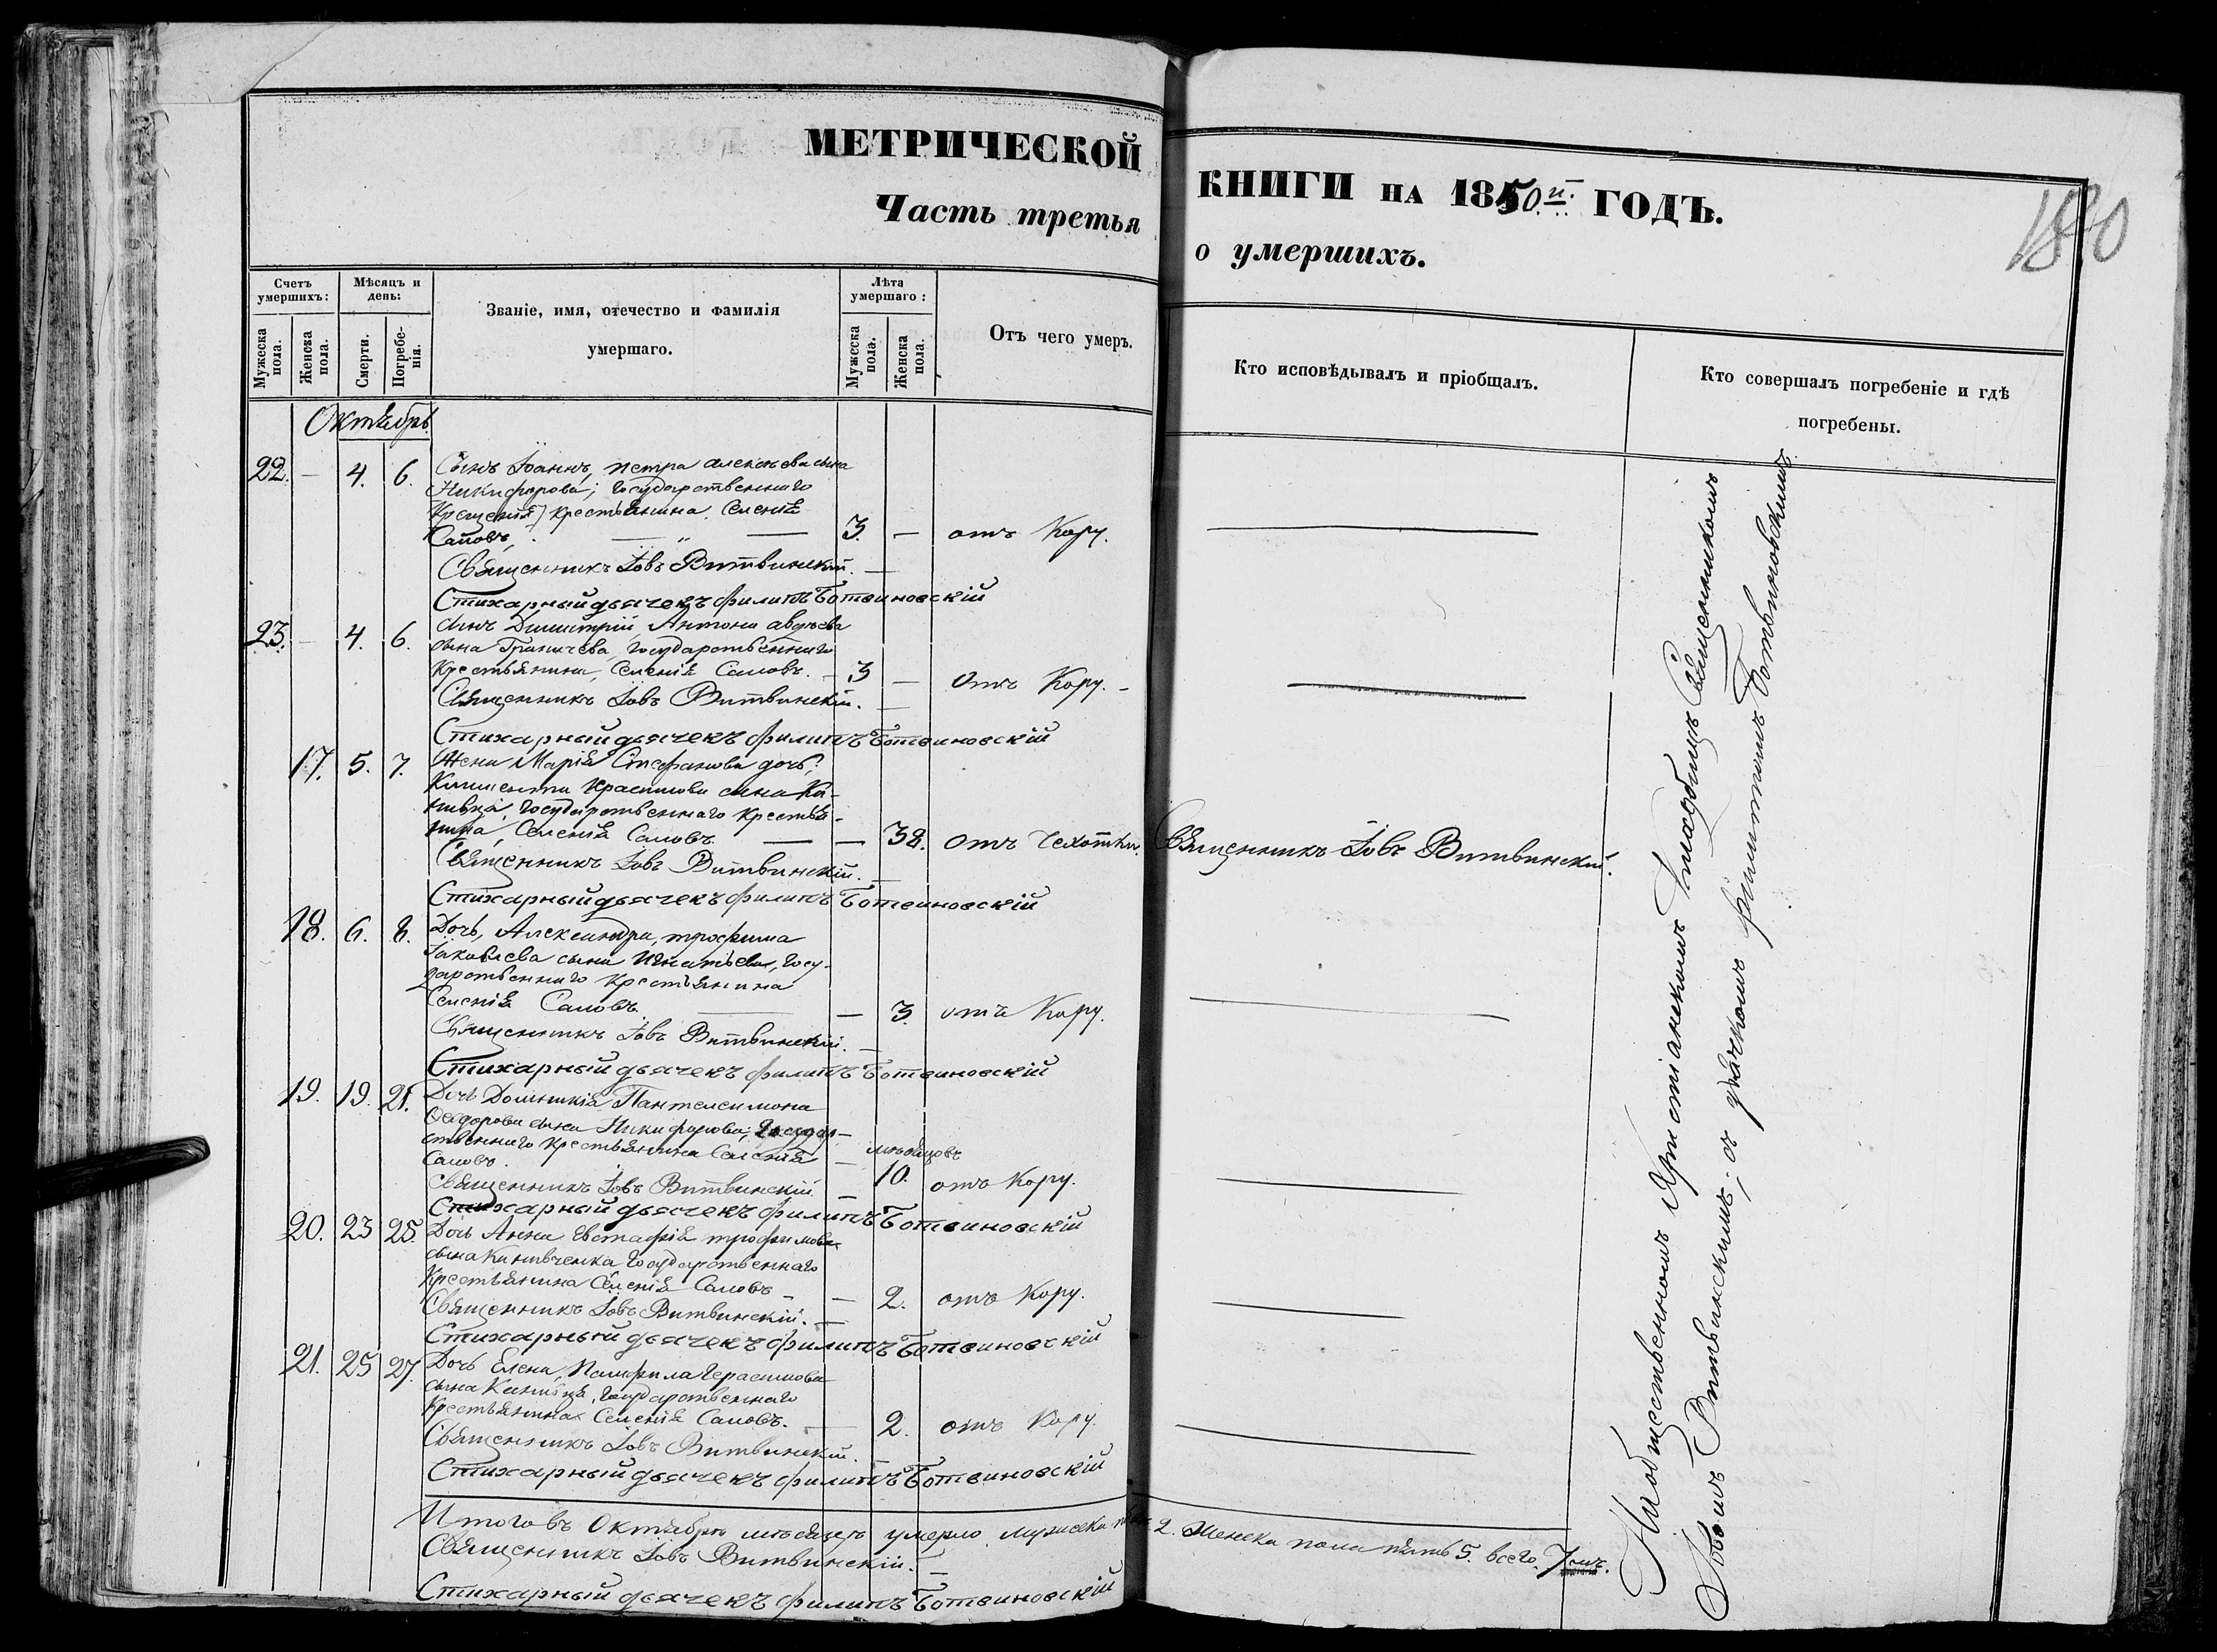 МЕТРИЧЕСКОЙ КНИГИ НА 1850.й. ГОДЪ.
180
Часть третья о умершихъ.
Счетъ умершихъ:
Мужеска пола.
Женска пола.
Мѣсяцъ и день:
Смерти.
Погребенія.
Званіе, имя, отечество и фамилія
умершаго.
Лѣта умершаго:
Мужеска пола.
Женска пола.
Отъ чего умеръ.
Кто исповѣдывалъ и пріобщалъ.
Кто совершалъ погребеніе и гдѣ
погребены.
Октябрь
22. — 4. 6. Сынъ Іоаннъ, петра алексѣева сына
Никифорова; государственнаго
крестьянина, селенія
Саловъ, — „ — 3. — отъ Кору.
Священникъ Іовъ Витвинскій. —
Стихарный дьячекъ филипъ Ботвиновскій
23. — 4. 6. сынъ Димитрій, Антона авдѣева
сына Государственнаго
крестьянина, селенія Саловъ. — 3 — отъ Кору. —
Священникъ Іовъ Витвинскій. —
Стихарный дьячекъ филипъ Ботвиновскій
17. 5. 7. Жена Марія Стефанова дочь,
Климента Герасимова сына Ка-
нивца, государственнаго крестья-
нина, Селенія Саловъ. — — 38. отъ чехотки. Священникъ Іовъ Витвинскій.
Священникъ Іовъ Витвинскій. —
Стихарный дьячекъ филипъ Ботвиновскій
18. 6. 8. Дочь, Александра, трофима
Іаковлева сына Игнатьева, госу-
дарственнаго крестьянина
Селенія Саловъ. — — 3. отъ Кору.
Священникъ Іовъ Витвинскій. —
Стихарный дьячекъ филипъ Ботвиновскій
19. 19. 21. Дочь Домникія Пантелеимона
Феодорова сына Никифорова, государ-
ственнаго крестьянина Селенія — мѣсяцовъ
Саловъ. 10. отъ кору.
Священникъ Іовъ Витвинскій. —
Стихарный дьячекъ филипъ Ботвиновскій
20. 23 25. Дочь Анна Евстафія трофимова
сына Канивченка государственнаго
крестьянина Селенія Саловъ — — 2. отъ Кору.
Священникъ Іовъ Витвинскій. —
Стихарный дьячекъ филипъ Ботвиновскій
21. 25 27. Дочь Елена, Памфила герасимова
сына Канивца, государственнаго
крестьянина Селенія Саловъ. — 2. отъ Кору.
Священникъ Іовъ Витвинскій.
Стихарный дьячекъ филипъ Ботвиновскій
Итого въ Октябрѣ мѣсяцѣ умерло мужеска пола 2. женска пола пять 5. всего. 7мъ.
Священникъ Іовъ Витвинскій. —
Стихарный дьячекъ филипъ Ботвиновскій
На общественномъ христіанскомъ кладбищѣ Священникомъ
Іовомъ Витвинскимъ; съ дьячкомъ филипомъ Ботвиновскимъ.